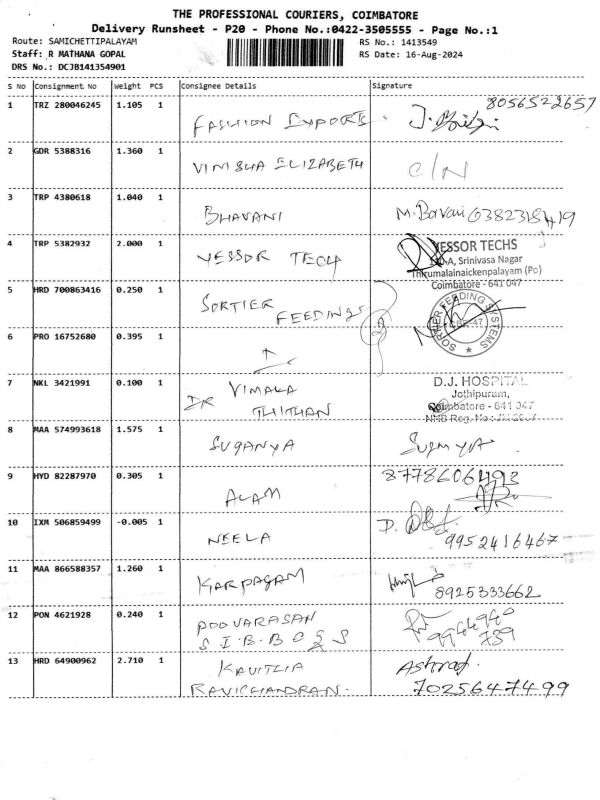 THE PROFESSIONAL COURIERS, COIMBATORE
Delivery Runsheet - P20 - Phone No.:0422-3505555 - Page No.:1
Route: SAMICHETTIPALAYAM RS No.: 1413549
Staff: R MATHANA GOPAL RS Date: 16-Aug-2024
DRS No.: DCJB141354901
S No Consignment No Weight PCS Consignee Details Signature
1 TRZ 280046245 1.105 1 8056522657
FASHION EXPORTS.
2 GDR 5388316 1.360 1 C/N
VIMSHA ELIZABETH
3 TRP 4380618 1.040 1
BHAVANI M. Bavani 6382318419
4 TRP 5382932 2.000 1 VESSOR TECHS
VESSOR TECH Srinivasa Nagar
Thirumalainaickenpalayam (Po)
Coimbatore - 641 047
5 HRD 700863416 0.250 1 SORTIER FEEDING SYSTEMS
SORTIER
FEEDINGS 2
6 PRO 16752680 0.395 1
7 NKL 3421991 0.100 1 D.J. HOSPITAL
DR VIMALA Jothipuram,
THITHAN Coimbatore - 641 047
NMB Reg. No
8 MAA 574993618 1.575 1
SUGANYA Suganya
9 HYD 82287970 0.305 1 8778606493
ALAM
10 IXM 506859499 -0.005 1 D.
NEELA 9952416467
11 MAA 866588357 1.260 1
KARPAGAM 8925333662
12 PON 4621928 0.240 1
POOVARASAN 9944940
789
13 HRD 64900962 2.710 1
KAVITHA Ashraf.
RAVICHANDRAN. 7025647499